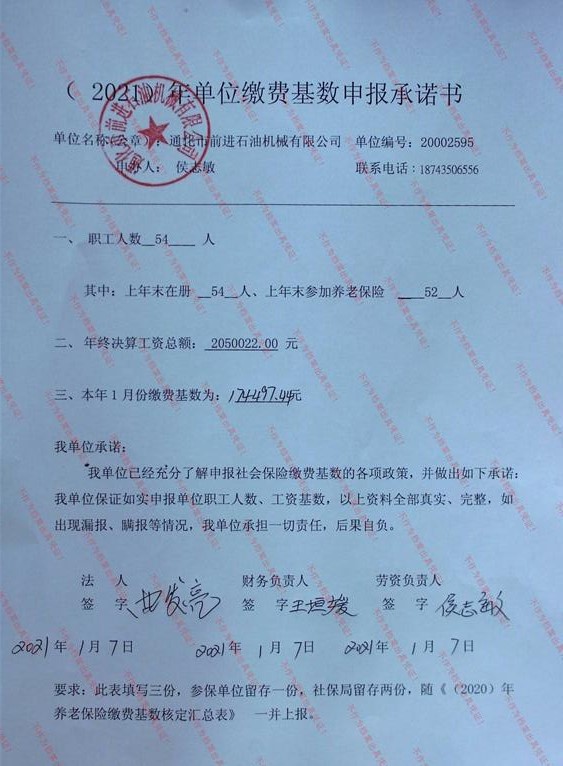 （ 2021 ）年单位缴费基数申报承诺书
单位名称（公章）：通化市前进石油机械有限公司 单位编号：20002595
申办人： 侯志敏 联系电话：18743506556
一、 职工人数 54 人
其中：上年末在册 54 人、上年末参加养老保险 52 人
二、年终决算工资总额： 2050022.00 元
三、本年1月份缴费基数为：174497.44元
我单位承诺：
我单位已经充分了解申报社会保险缴费基数的各项政策，并做出如下承诺：
我单位保证如实申报单位职工人数、工资基数，以上资料全部真实、完整，如
出现漏报、瞒报等情况，我单位承担一切责任，后果自负。
法 人 财务负责人 劳资负责人
签 字 签 字 签 字 侯志敏
2021年 1月 7日 2021年 1月 7日 2021年 1月 7日
要求：此表填写三份，参保单位留存一份，社保局留存两份，随《（2020）年
养老保险缴费基数核定汇总表》 一并上报。